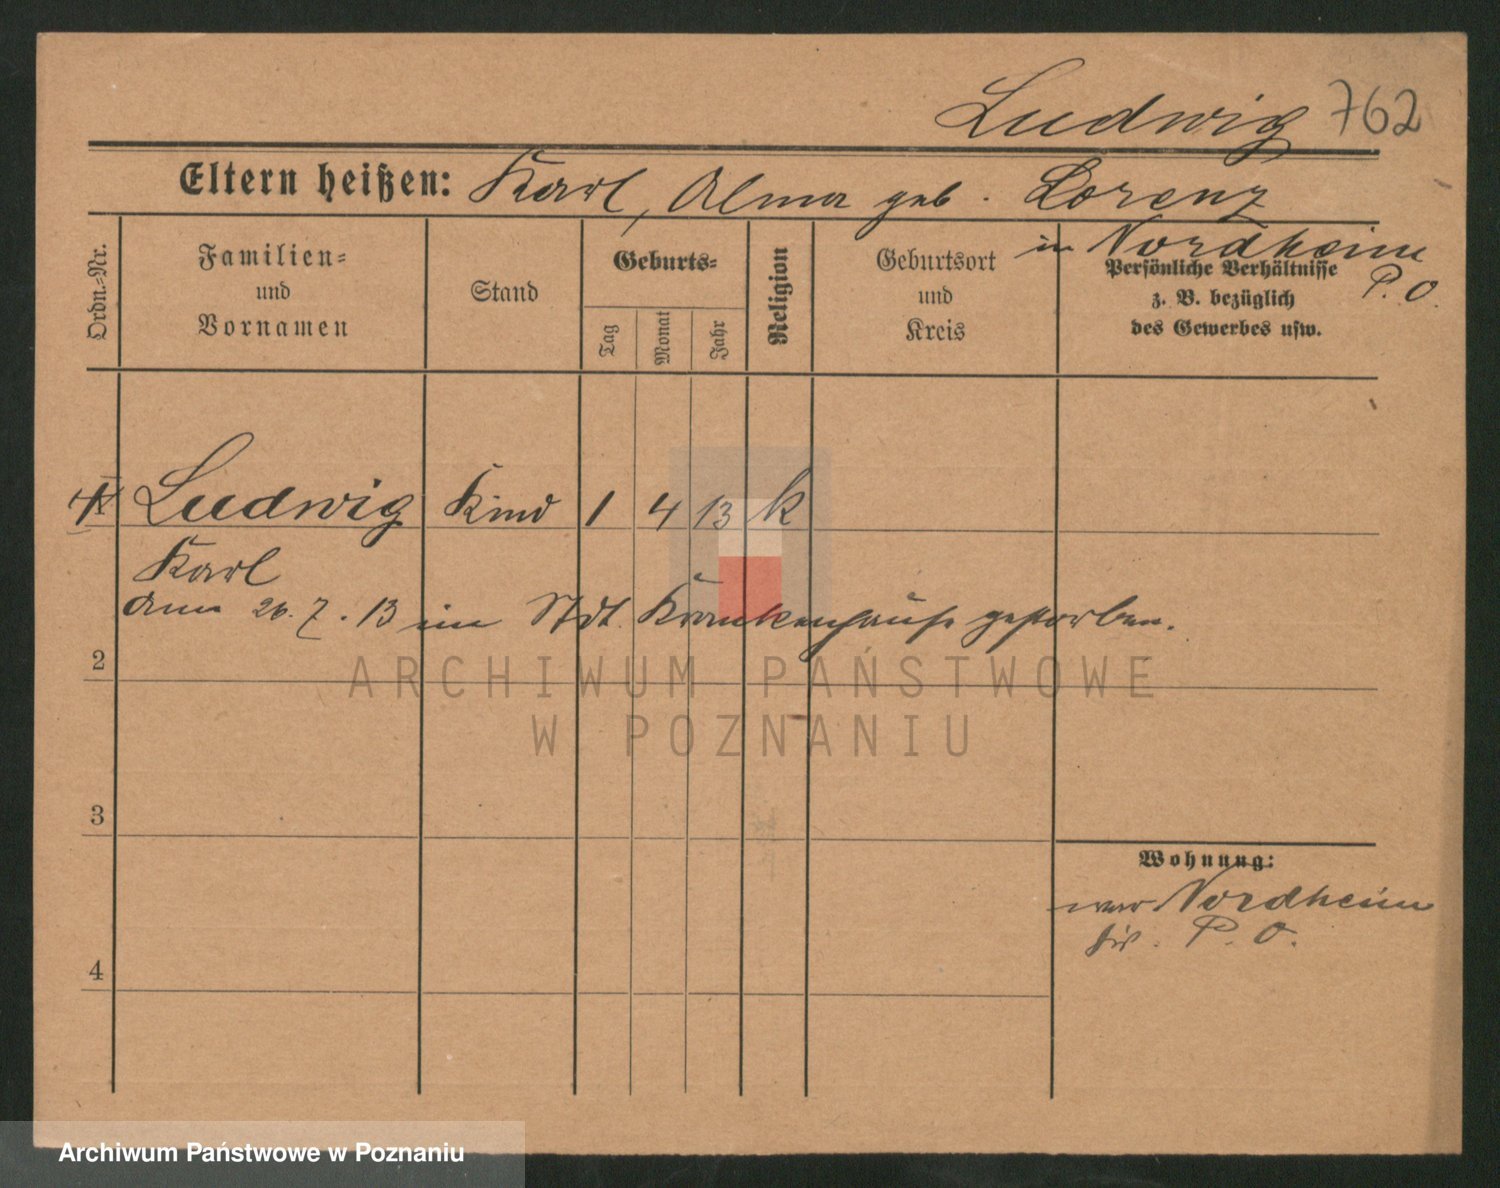 Ludwig 762
Eltern heißen: Karl, Alma geb. Lorenz
in Nordheim
P. O.
Ordn.-Nr.
Familien-
und
Vornamen
Stand
Geburts-
Tag
Monat
Jahr
Religion
Geburtsort
und
Kreis
Persönliche Verhältnisse
z. B. bezüglich
des Gewerbes usw.
Ludwig Kind 1 4 13 k
Karl
am 26. 7. 13 im Stdt. Krankenhause gestorben.
2
ARCHIWUM PAŃSTWOWE
W POZNANIU
3
Wohnung:
war Nordheim
P. O.
4
Archiwum Państwowe w Poznaniu